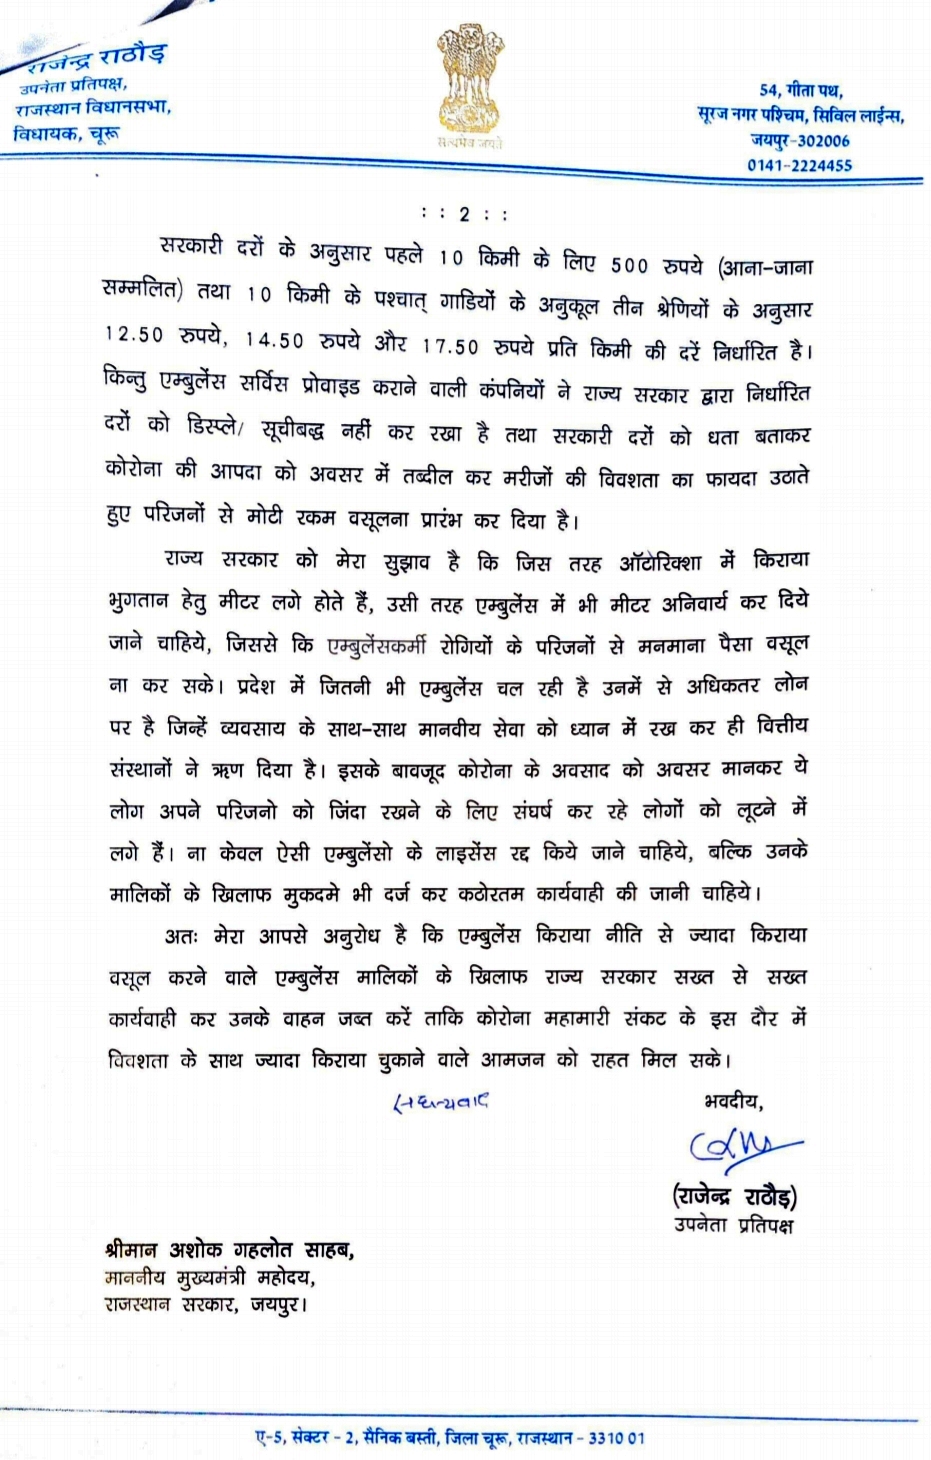 राजेन्द्र राठौड़
उपनेता प्रतिपक्ष,
राजस्थान विधानसभा,
विधायक, चूरू
सत्यमेव जयते
54, गीता पथ,
सूरज नगर पश्चिम, सिविल लाईन्स,
जयपुर-302006
0141-2224455
: : 2 : :
सरकारी दरों के अनुसार पहले 10 किमी के लिए 500 रुपये (आना-जाना
सम्मलित) तथा 10 किमी के पश्चात् गाडियों के अनुकूल तीन श्रेणियों के अनुसार
12.50 रुपये, 14.50 रुपये और 17.50 रुपये प्रति किमी की दरें निर्धारित है।
किन्तु एम्बुलेंस सर्विस प्रोवाइड कराने वाली कंपनियों ने राज्य सरकार द्वारा निर्धारित
दरों को डिस्प्ले/ सूचीबद्ध नहीं कर रखा है तथा सरकारी दरों को धता बताकर
कोरोना की आपदा को अवसर में तब्दील कर मरीजों की विवशता का फायदा उठाते
हुए परिजनों से मोटी रकम वसूलना प्रारंभ कर दिया है।
राज्य सरकार को मेरा सुझाव है कि जिस तरह ऑटोरिक्शा में किराया
भुगतान हेतु मीटर लगे होते हैं, उसी तरह एम्बुलेंस में भी मीटर अनिवार्य कर दिये
जाने चाहिये, जिससे कि एम्बुलेंसकर्मी रोगियों के परिजनों से मनमाना पैसा वसूल
ना कर सके। प्रदेश में जितनी भी एम्बुलेंस चल रही है उनमें से अधिकतर लोन
पर है जिन्हें व्यवसाय के साथ-साथ मानवीय सेवा को ध्यान में रख कर ही वित्तीय
संस्थानों ने ऋण दिया है। इसके बावजूद कोरोना के अवसाद को अवसर मानकर ये
लोग अपने परिजनो को जिंदा रखने के लिए संघर्ष कर रहे लोगों को लूटने में
लगे हैं। ना केवल ऐसी एम्बुलेंसो के लाइसेंस रद्द किये जाने चाहिये, बल्कि उनके
मालिकों के खिलाफ मुकदमे भी दर्ज कर कठोरतम कार्यवाही की जानी चाहिये।
अतः मेरा आपसे अनुरोध है कि एम्बुलेंस किराया नीति से ज्यादा किराया
वसूल करने वाले एम्बुलेंस मालिकों के खिलाफ राज्य सरकार सख्त से सख्त
कार्यवाही कर उनके वाहन जब्त करें ताकि कोरोना महामारी संकट के इस दौर में
विवशता के साथ ज्यादा किराया चुकाने वाले आमजन को राहत मिल सके।
सधन्यवाद
भवदीय,
(राजेन्द्र राठौड़)
उपनेता प्रतिपक्ष
श्रीमान अशोक गहलोत साहब,
माननीय मुख्यमंत्री महोदय,
राजस्थान सरकार, जयपुर।
ए-5, सेक्टर - 2, सैनिक बस्ती, जिला चूरू, राजस्थान - 3310 01